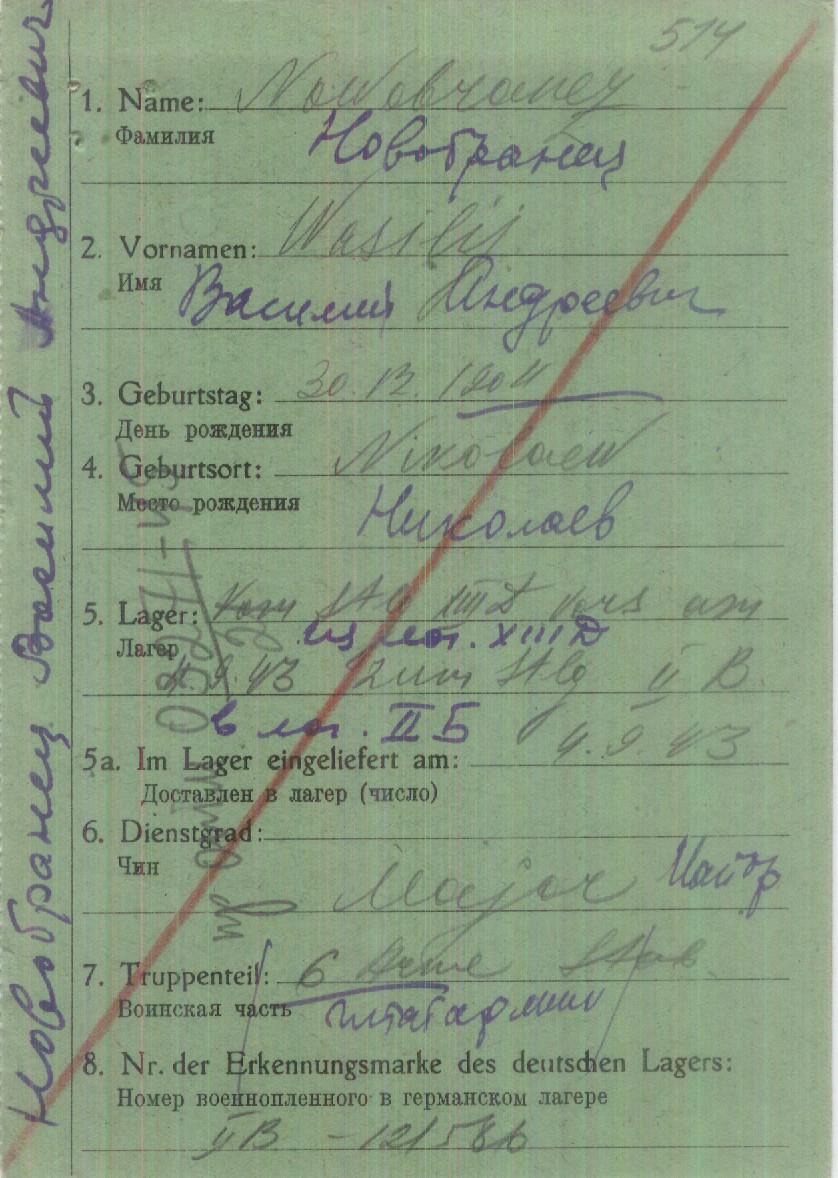 514
1. Name: Nowobranez
Фамилия
Новобранец
2. Vornamen: Wasilij
Имя Василий Андреевич
3. Geburtstag: 30.12.1904
День рождения
4. Geburtsort: Nikolaew
Место рождения
Николаев
5. Lager: Vom Stlg XIII D vers am
Лагер из лаг. XIII D
4.9.43 zum Stlg II B
в лаг. II Б
5a. Im Lager eingeliefert am: 4.9.43
Доставлен в лагер (число)
6. Dienstgrad:
Чин
Major Майор
7. Truppenteil: 6 Armee Stab
Воинская часть штаб армии
8. Nr. der Erkennungsmarke des deutschen Lagers:
Номер военнопленного в германском лагере
II B - 121586
Новобранец Василий Андреевич